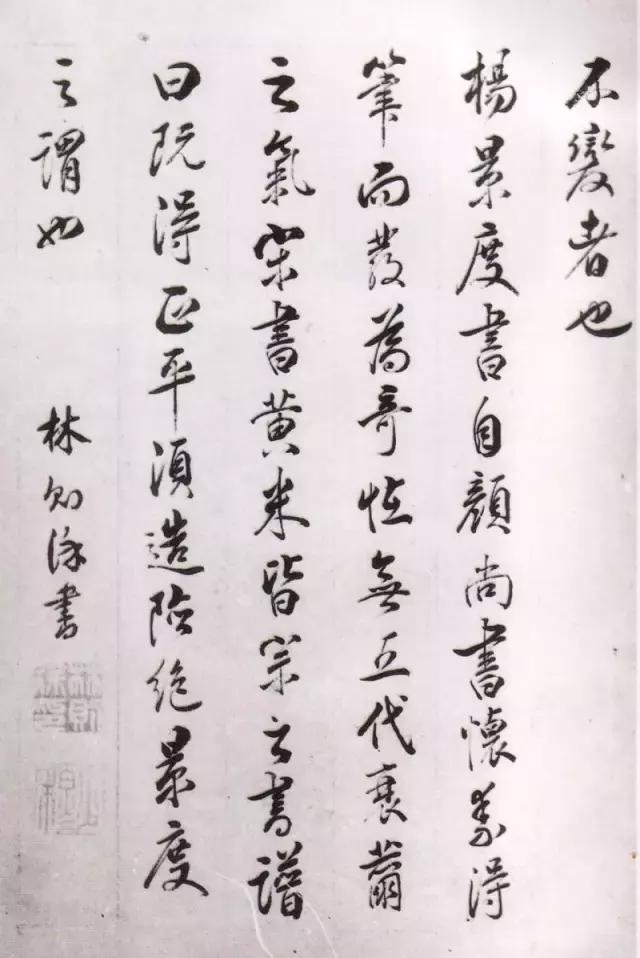 不變者也
楊景度書自顏尚書懷素得
筆而發為奇怪無五代衰薾
之氣宋書黃米皆宗之書譜
曰既得正平須造險絕景度
之謂也
林則徐書